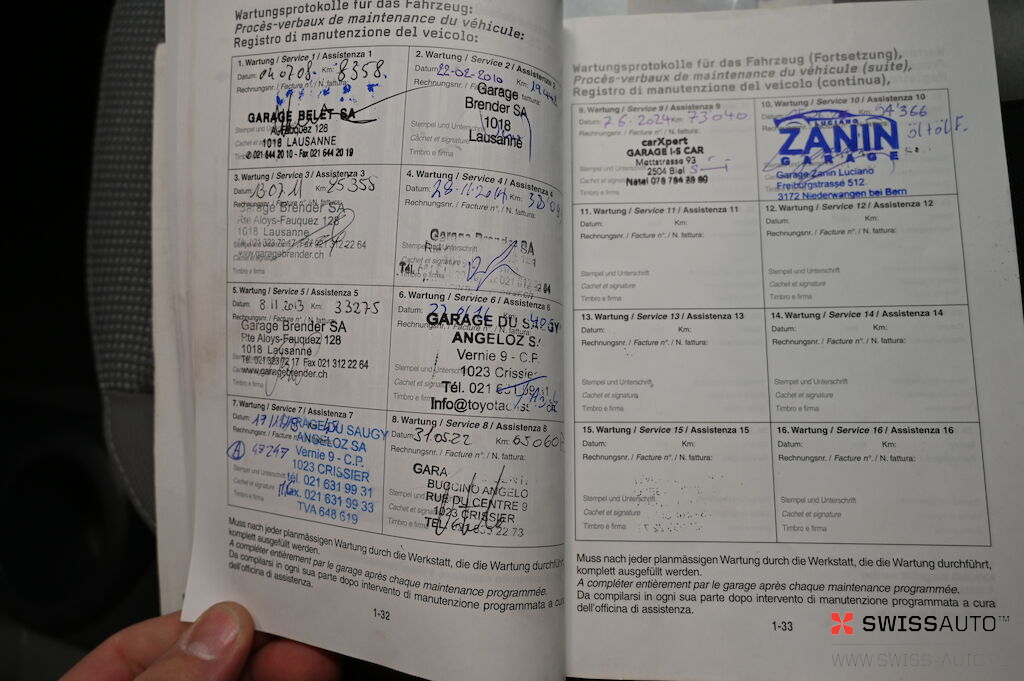 Wartungsprotokolle für das Fahrzeug:
Procès-verbaux de maintenance du véhicule:
Registro di manutenzione del veicolo:
1. Wartung / Service 1 / Assistenza 1
Datum: 04 07 08. Km: 8358.
Rechnungsnr. / Facture n°. / N. fattura:
GARAGE BELET SA
128
1018 LAUSANNE
Fax 021 644 20 19
Timbro e firma
2. Wartung / Service 2 / Assistenza 2
Datum: 22-02-2010 Km:
Garage
Brender SA
1018
Lausanne
Stempel und Unterschrift
Cachet et signature
Timbro e firma
3. Wartung / Service 3 / Assistenza 3
Datum: Km: 25355
Garage Brender SA
Rte Aloys-Fauquez 128
1018 Lausanne
Tél. 021 323 72 17 Fax 021 312 22 64
www.garagebrender.ch
Timbro e firma
4. Wartung / Service 4 / Assistenza 4
Datum: Km:
Rechnungsnr. / Facture n°. / N. fattura:
Garage Brender SA
Stempel und Unterschrift
Cachet et signature
Tél.
5. Wartung / Service 5 / Assistenza 5
Datum: 8.11.2013 Km: 33275
Garage Brender SA
Rte Aloys-Fauquez 128
1018 Lausanne
Tél. 021 323 72 17 Fax 021 312 22 64
www.garagebrender.ch
Timbro e firma
6. Wartung / Service 6 / Assistenza 6
Datum: Km:
GARAGE DU SAUGY
ANGELOZ S.
Vernie 9 - C.P.
1023 Crissier
Tél. 021
Timbro e firma
7. Wartung / Service 7 / Assistenza 7
Datum:
GARAGE DU SAUGY
ANGELOZ SA
A 47247
Vernie 9 - C.P.
1023 CRISSIER
tél. 021 631 99 31
fax. 021 631 99 33
TVA 648 619
Timbro e firma
8. Wartung / Service 8 / Assistenza 8
Datum: 31.05.22 Km: 65060
Rechnungsnr. / Facture n°. / N. fattura:
GARA
BUCCINO ANGELO
RUE DU CENTRE 9
1023 CRISSIER
Stempel und Unterschrift
Cachet et signature
Timbro e firma
Muss nach jeder planmässigen Wartung durch die Werkstatt, die die Wartung durchführt,
komplett ausgefüllt werden.
A compléter entièrement par le garage après chaque maintenance programmée.
Da compilarsi in ogni sua parte dopo intervento di manutenzione programmata a cura
dell'officina di assistenza.
1-32
Wartungsprotokolle für das Fahrzeug (Fortsetzung),
Procès-verbaux de maintenance du véhicule (suite),
Registro di manutenzione del veicolo (continua),
9. Wartung / Service 9 / Assistenza 9
Datum: 7.6.2024 Km: 73040
Rechnungsnr. / Facture n°. / N. fattura:
carXpert
GARAGE I-S CAR
Mettstrasse 93
2504 Biel
Natel 078 784 28 80
Timbro e firma
10. Wartung / Service 10 / Assistenza 10
LUCIANO
ZANIN
GARAGE
Garage Zanin Luciano
Freiburgstrasse 512
3172 Niederwangen bei Bern
11. Wartung / Service 11 / Assistenza 11
Datum: Km:
Rechnungsnr. / Facture n°. / N. fattura:
Stempel und Unterschrift
Cachet et signature
Timbro e firma
12. Wartung / Service 12 / Assistenza 12
Datum: Km:
Rechnungsnr. / Facture n°. / N. fattura:
Stempel und Unterschrift
Cachet et signature
Timbro e firma
13. Wartung / Service 13 / Assistenza 13
Datum: Km:
Rechnungsnr. / Facture n°. / N. fattura:
Stempel und Unterschrift
Cachet et signature
Timbro e firma
14. Wartung / Service 14 / Assistenza 14
Datum: Km:
Rechnungsnr. / Facture n°. / N. fattura:
Stempel und Unterschrift
Cachet et signature
Timbro e firma
15. Wartung / Service 15 / Assistenza 15
Datum: Km:
Rechnungsnr. / Facture n°. / N. fattura:
Stempel und Unterschrift
Cachet et signature
Timbro e firma
16. Wartung / Service 16 / Assistenza 16
Datum: Km:
Rechnungsnr. / Facture n°. / N. fattura:
Stempel und Unterschrift
Cachet et signature
Timbro e firma
Muss nach jeder planmässigen Wartung durch die Werkstatt, die die Wartung durchführt,
komplett ausgefüllt werden.
A compléter entièrement par le garage après chaque maintenance programmée.
Da compilarsi in ogni sua parte dopo intervento di manutenzione programmata a cura
dell'officina di assistenza.
1-33
SWISSAUTO™
WWW.SWISS-AUTO.PL